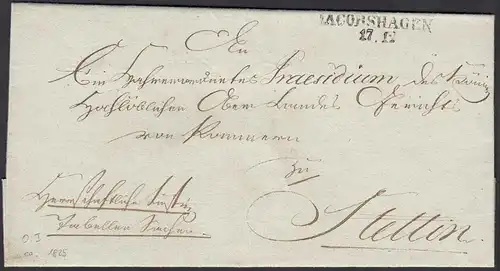 IACOBSHAGEN
17. 12
An
Ein Hochverordnetes Praesidium des König
Hochlöblichen Ober Landes Gerichts
von Pommern
zu
Stettin.
Herrschaftliche Justiz
Tabellen Sachen
1825